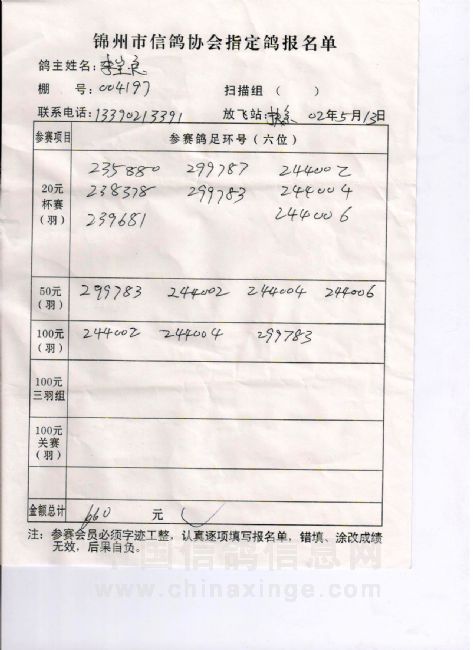 锦州市信鸽协会指定鸽报名单
鸽主姓名:
棚 号:004197 扫描组( )
联系电话:13390213391 放飞站: 02年5月13日
参赛项目 参赛鸽足环号(六位)
20元杯赛(羽) 235880 299787 244002
238378 299783 244004
239681 244006
50元(羽) 299783 244002 244004 244006
100元(羽) 244002 244004 299783
100元三羽组
100元关赛(羽)
金额总计 660 元
注:参赛会员必须字迹工整,认真逐项填写报名单,错填、涂改成绩
无效,后果自负。
中国信鸽信息网
www.chinaxinge.com